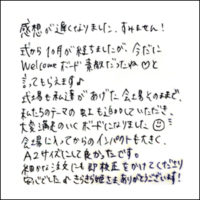 感想が遅くなりました。すみません!
式から1ヶ月が経ちましたが、今だに
Welcomeボード素敵だったね♡と
言ってもらえます♪
式場も私達があげた会場そのままで、
私たちのテーマの虹も追加していただき、
大変満足のいくボードになりました☺
会場に入ってからのインパクトも大きく、
A2サイズにして良かったです。
細かな注文にも即校正をかけてくださり
安心でした♪きらきら姫さまありがとうございます!